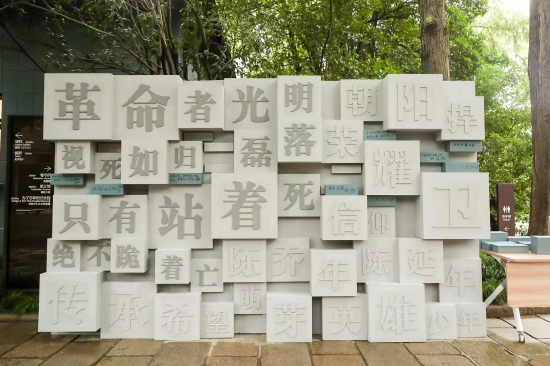 革命者光明朝阳捍
视死如归磊落荣耀卫
只有站着死信仰
绝不跪着亡陈乔年陈延年
传承希望萌芽英雄少年